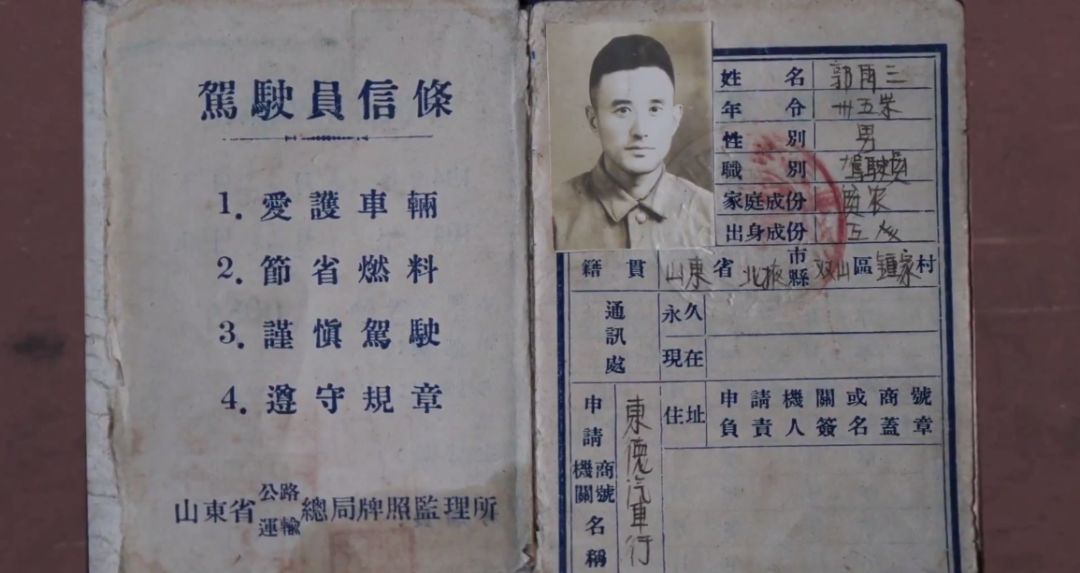 駕駛員信條
1. 愛護車輛
2. 節省燃料
3. 謹慎駕駛
4. 遵守規章
山東省公路運輸總局牌照監理所
姓名 郭雨三
年令 卅五岁
性別 男
職別 駕駛員
家庭成份 贫农
出身成份 工人
籍貫 山東省北掖市縣双山區鍾家村
通訊處 永久
現在
申請機關商號名稱 東德汽車行
住址
申請機關或商號
負責人簽名蓋章